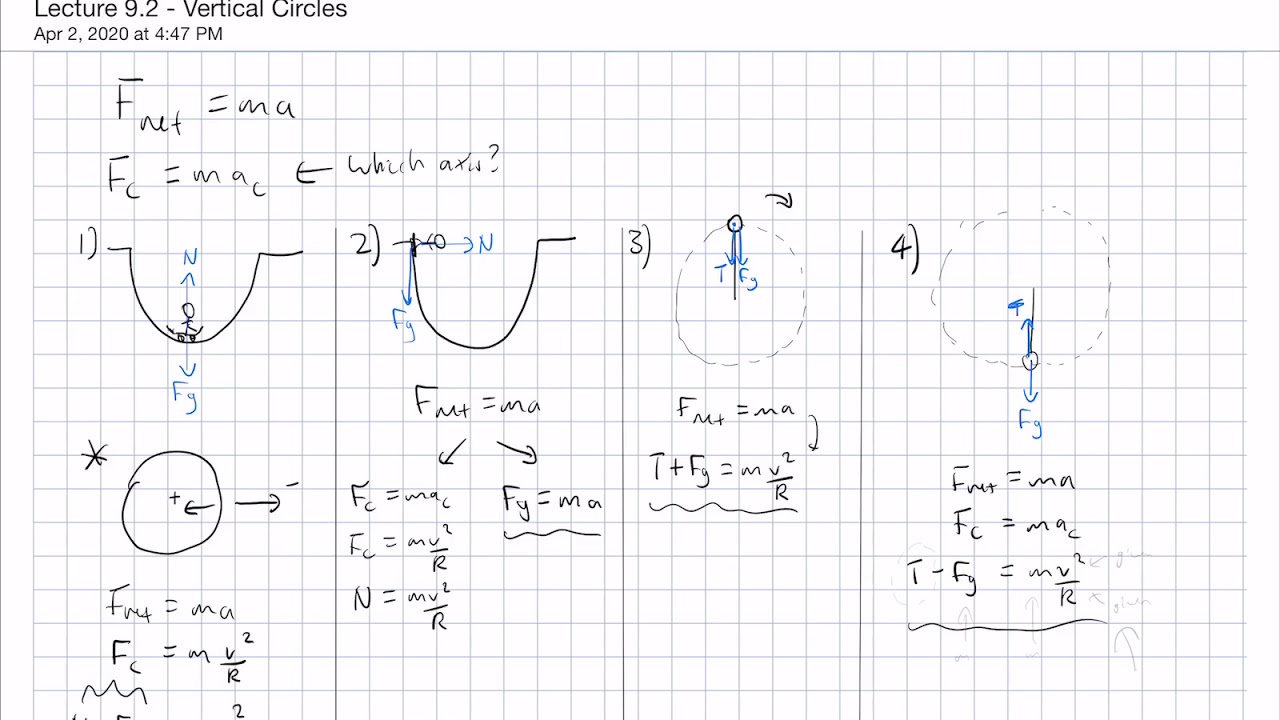 Lecture 9.2 - Vertical Circles
Apr 2, 2020 at 4:47 PM
F_net = ma
F_c = ma_c ← which axis?
1)
N
Fg
*
+ ← → -
F_net = ma
F_c = m v²/R
2)
N
Fg
F_net = ma
F_c = ma_c
F_c = m v²/R
N = m v²/R
Fy = ma
3)
T Fg
F_net = ma
T + Fg = m v²/R
4)
T
Fg
F_net = ma
F_c = ma_c
T - Fg = m v²/R
given
m m